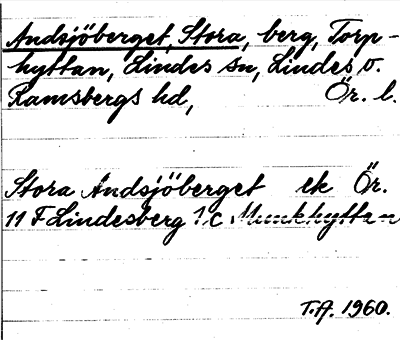 Andsjöberget, Stora, berg, Torp-
hyttan, Lindes sn, Lindes o.
Ramsbergs hd, Ör. l.
Stora Andsjöberget ek Ör.
11 F Lindesberg 1c Munkhyttan
T.A. 1960.